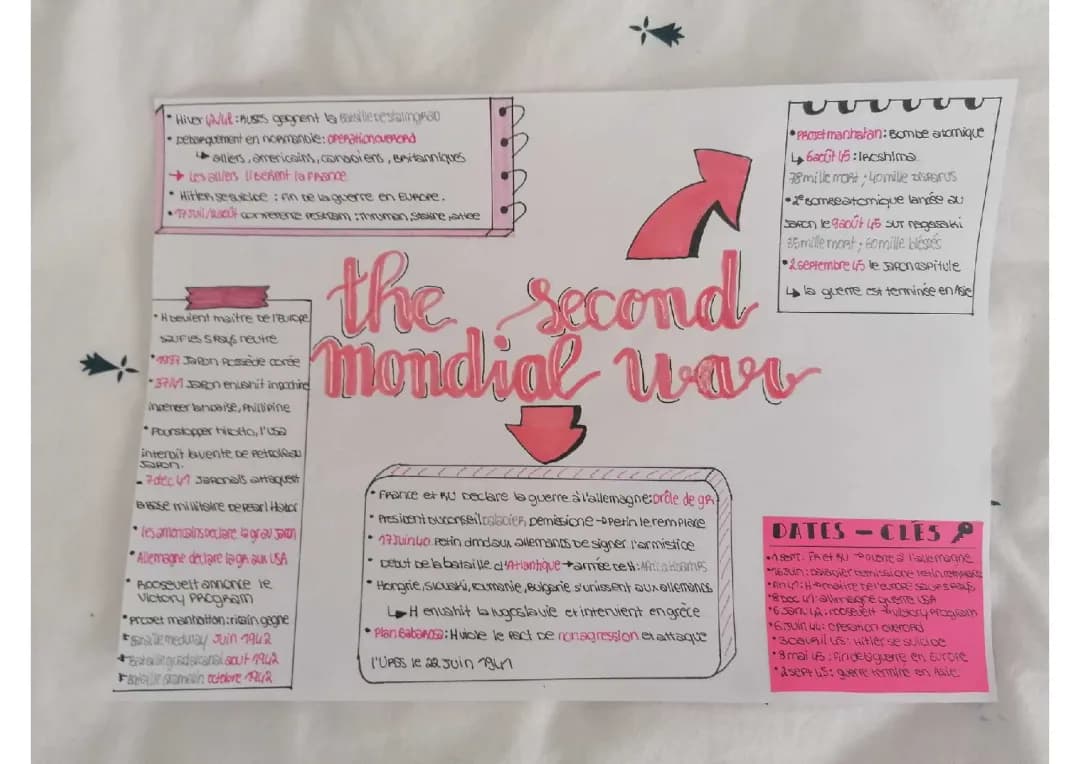 • Hiver 42/43: RUSES gagnent la Bataille De Stalingrad
• Débarquement en normandie: OPERATION OVERLORD
↳ alliers, américains, canadiens, Britanniques
→ Les alliers libèrent la France
• Hitler se suicide : fin de la guerre en EUROPE.
• 17 Juil/2 août conférence POSTDAM : Thruman, Staline, Attlee
• PROJET manhatan: Bombe atomique
↳ 6 août 45 : Iroshima
78 mille mort ; 40 mille DISPARUS
• 2e Bombe atomique lancée au
Japon le 9 août 45 sur nagasaki
35 mille mort ; 60 mille blessés
• 2 septembre 45 le Japon capitule
↳ la guerre est terminée en Asie
the second
mondial war
• H Devient maître de l'EUROPE
sauf les 5 Pays neutre
• 1937 Japon Possède corée
• 37/41 Japon envahit indochine
néerlandaise, Phillipine
• Pour stopper hirohito, l'USA
interdit la vente de Pétrole au
Japon.
- 7 dec 41 Japonais attaquent
la base militaire de Pearl Habor
• les américains déclare la gr au Japon
• Allemagne déclare la gr aux USA
• Roosevelt annonce le
Victory PROGRAM
• Projet manhatton: ricain gagne
Bataille medway Juin 1942
Bataille guadalcanal aout 1942
Bataille octobre 1942
• France et RU Déclare la guerre à l'allemagne: Drôle de gr
• Président du conseil Daladier Démissione → Pétin le remplace
• 17 Juin 40. Pétin dmd aux allemands de signer l'armistice
• Début de la bataille d'Atlantique → armée de H: Africa Korps
• Hongrie, Slovaski, Roumanie, Bulgarie s'unissent aux allemands
↳ H envahit la Yugoslavie et intervient en grèce
• Plan Babarosa: H viole le Pact de non agression et attaque
l'URSS le 22 Juin 1941
DATES - CLÉS
• 1 sept: FR et RU guerre à l'allemagne
• 16 Juin : Daladier Démissione Pétin remplace
• Fin 41: H maître de l'europe sauf 5 Pays
• 8 Dec 41: allemagne guerre USA
• 6 Janv 42: roosevelt → victory Program
• 6 Juin 44: Opération overlord
• 30 avril 45: Hitler se suicide
• 8 mai 45: Fin de la guerre en Europe
• 2 sept 45: guerre termine en Asie.